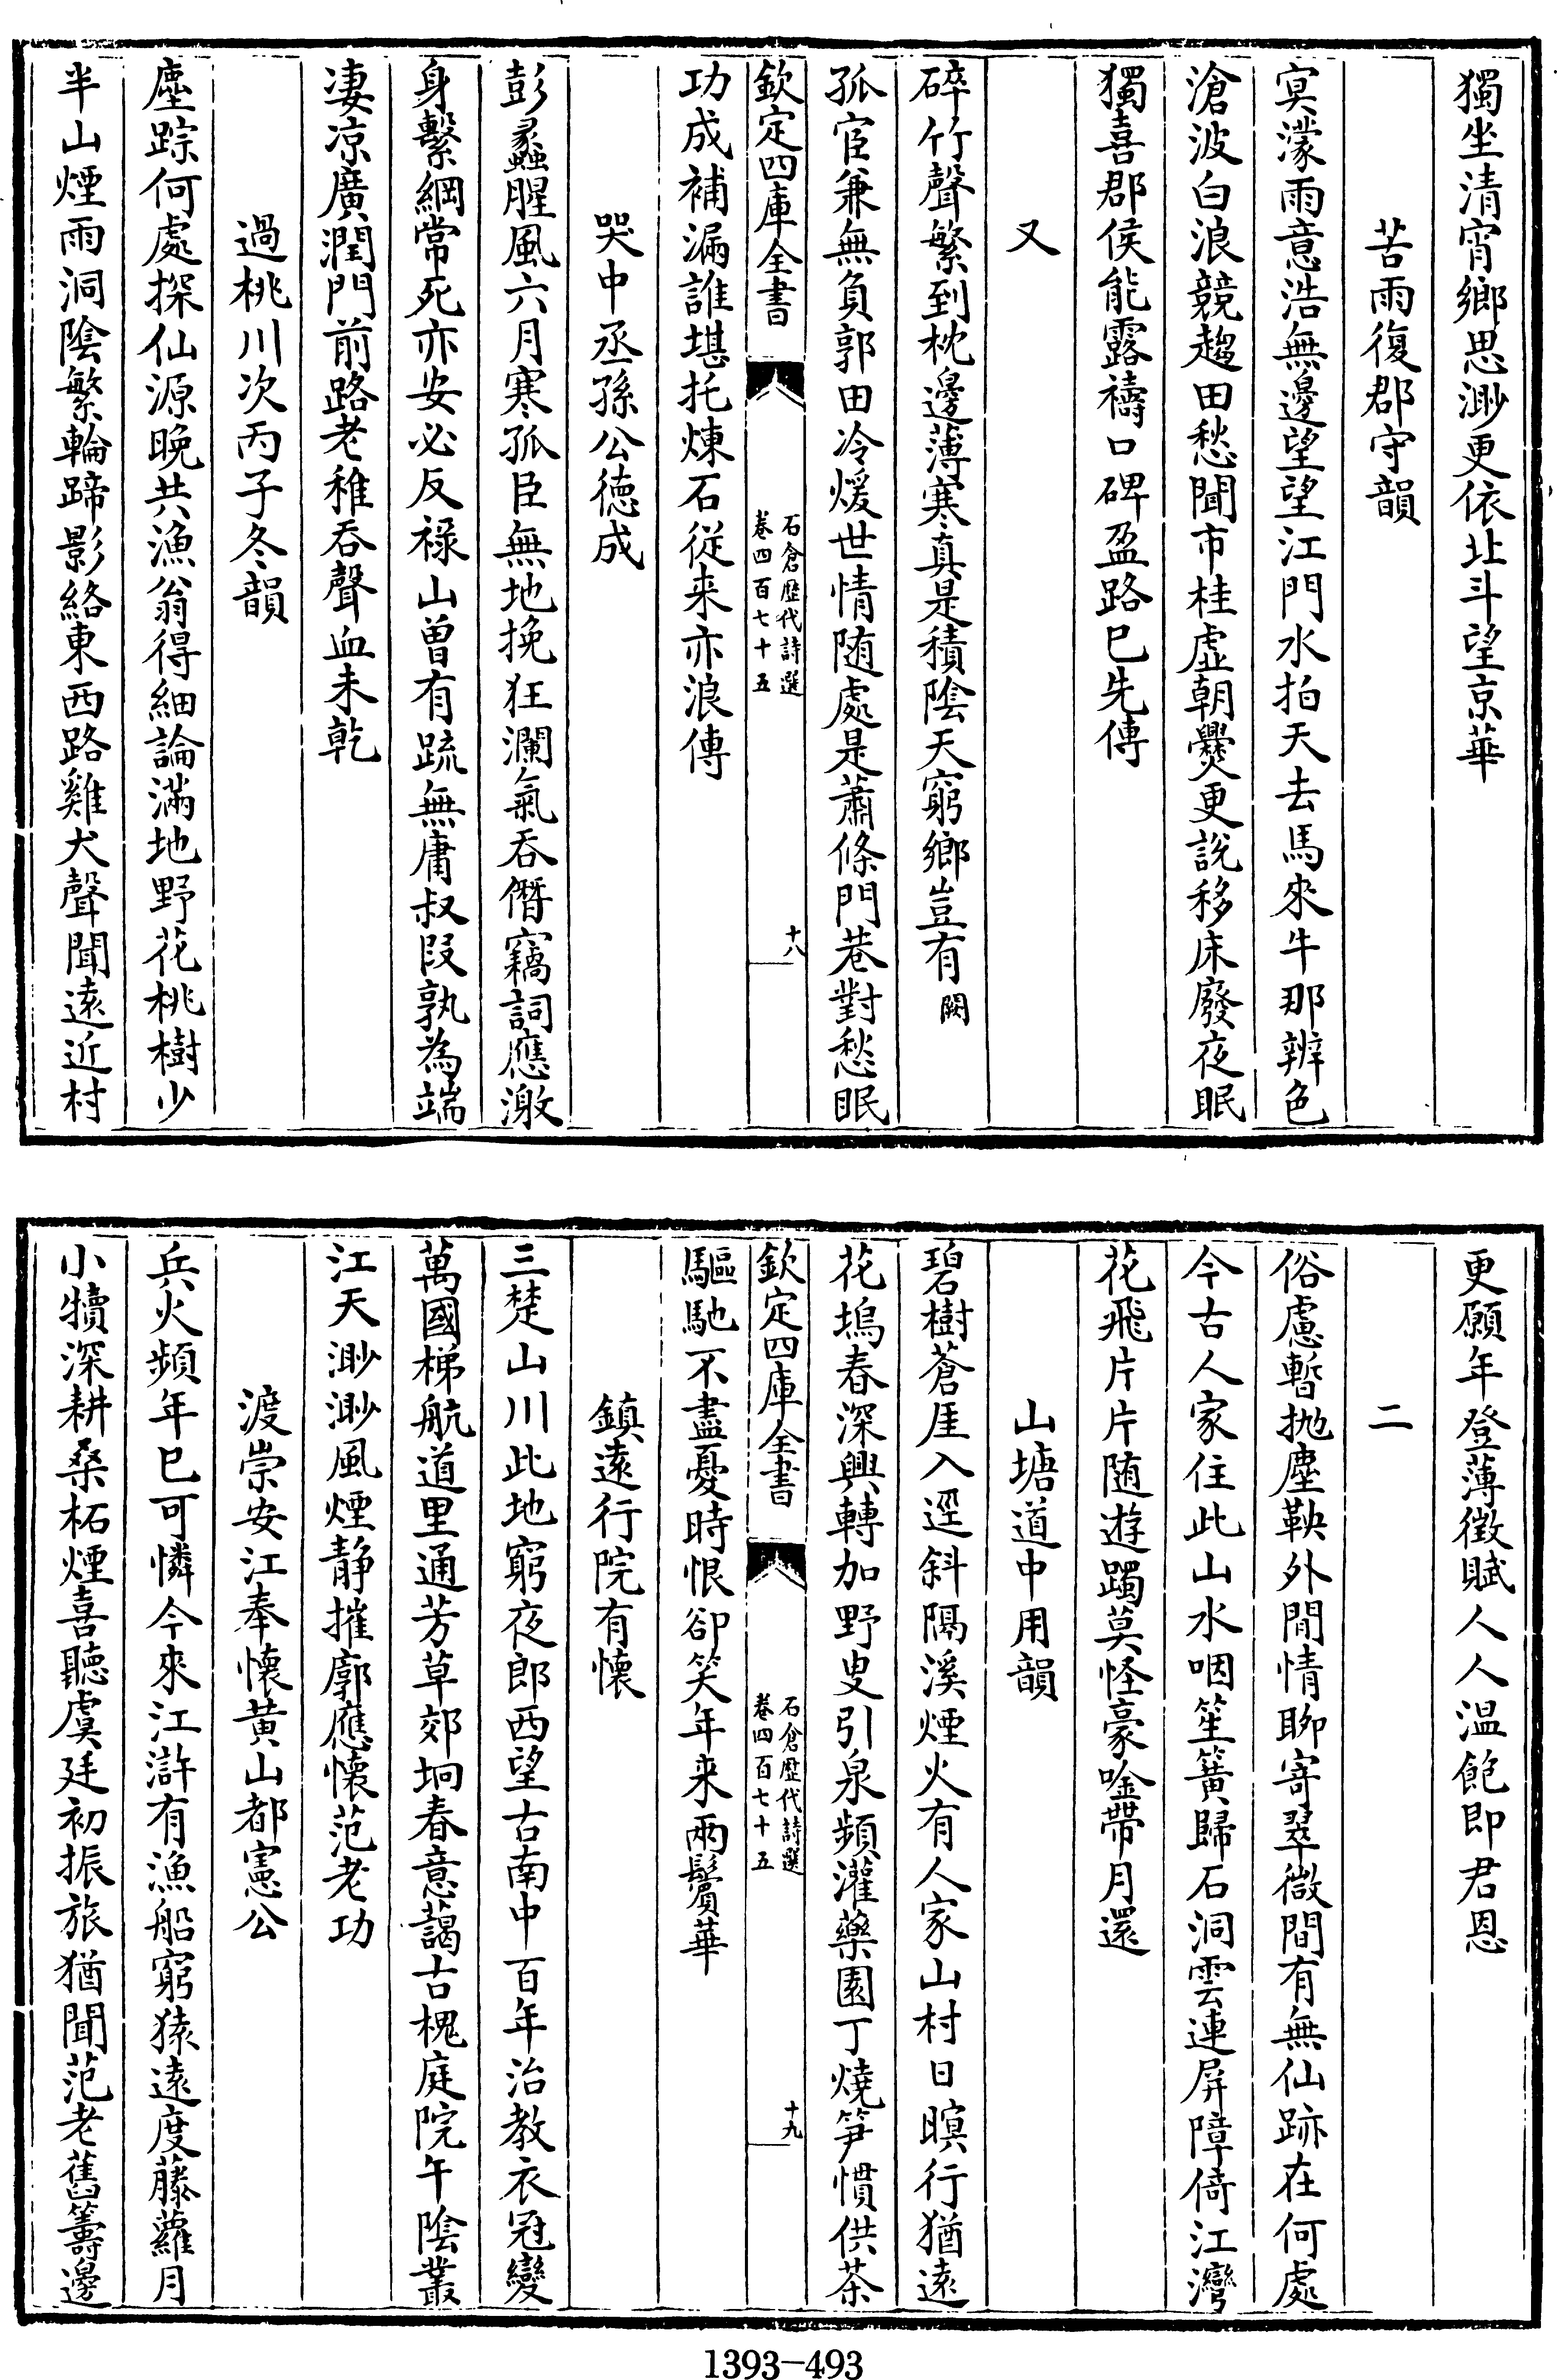 獨坐清宵鄉思渺更依北斗望京華
苦雨復郡守韻
冥濛雨意浩無邊望望江門水拍天去馬來牛那辨色
滄波白浪競趨田愁聞市桂虛朝爨更說移床廢夜眠
獨喜郡侯能露禱口碑盈路已先傳
又
碎竹聲繁到枕邊薄寒真是積陰天窮鄉豈有闕
孤宦兼無負郭田冷煖世情随處是蕭條門巷對愁眠
欽定四庫全書
石倉歷代詩選
卷四百七十五
十八
功成補漏誰堪托煉石從来亦浪傳
哭中丞孫公德成
彭蠡腥風六月寒孤臣無地挽狂瀾氣吞僭竊詞應激
身繫綱常死亦安必反祿山曽有疏無庸叔段孰為端
凄凉廣潤門前路老稚吞聲血未乾
過桃川次丙子冬韻
塵踪何處探仙源晚共漁翁得細論滿地野花桃樹少
半山煙雨洞陰繁輪蹄影絡東西路雞犬聲聞遠近村
更願年登薄徵賦人人溫飽即君恩
二
俗慮暫拋塵鞅外閒情聊寄翠微間有無仙跡在何處
今古人家住此山水咽笙簧歸石洞雲連屏障倚江灣
花飛片片随遊躅莫怪豪唫帶月還
山塘道中用韻
碧樹蒼厓入逕斜隔溪煙火有人家山村日暝行猶遠
花塢春深興轉加野叟引泉頻灌藥園丁燒笋慣供茶
欽定四庫全書
石倉歷代詩選
卷四百七十五
十九
驅馳不盡憂時恨卻笑年来兩鬢華
鎮遠行院有懷
三楚山川此地窮夜郎西望古南中百年治教衣冠變
萬國梯航道里通芳草郊坰春意藹古槐庭院午陰叢
江天渺渺風煙静摧廓應懷范老功
渡崇安江奉懷黄山都憲公
兵火頻年已可憐今來江滸有漁船窮猿遠度藤蘿月
小犢深耕桑柘煙喜聽虞廷初振旅猶聞范老舊籌邊
1393-493